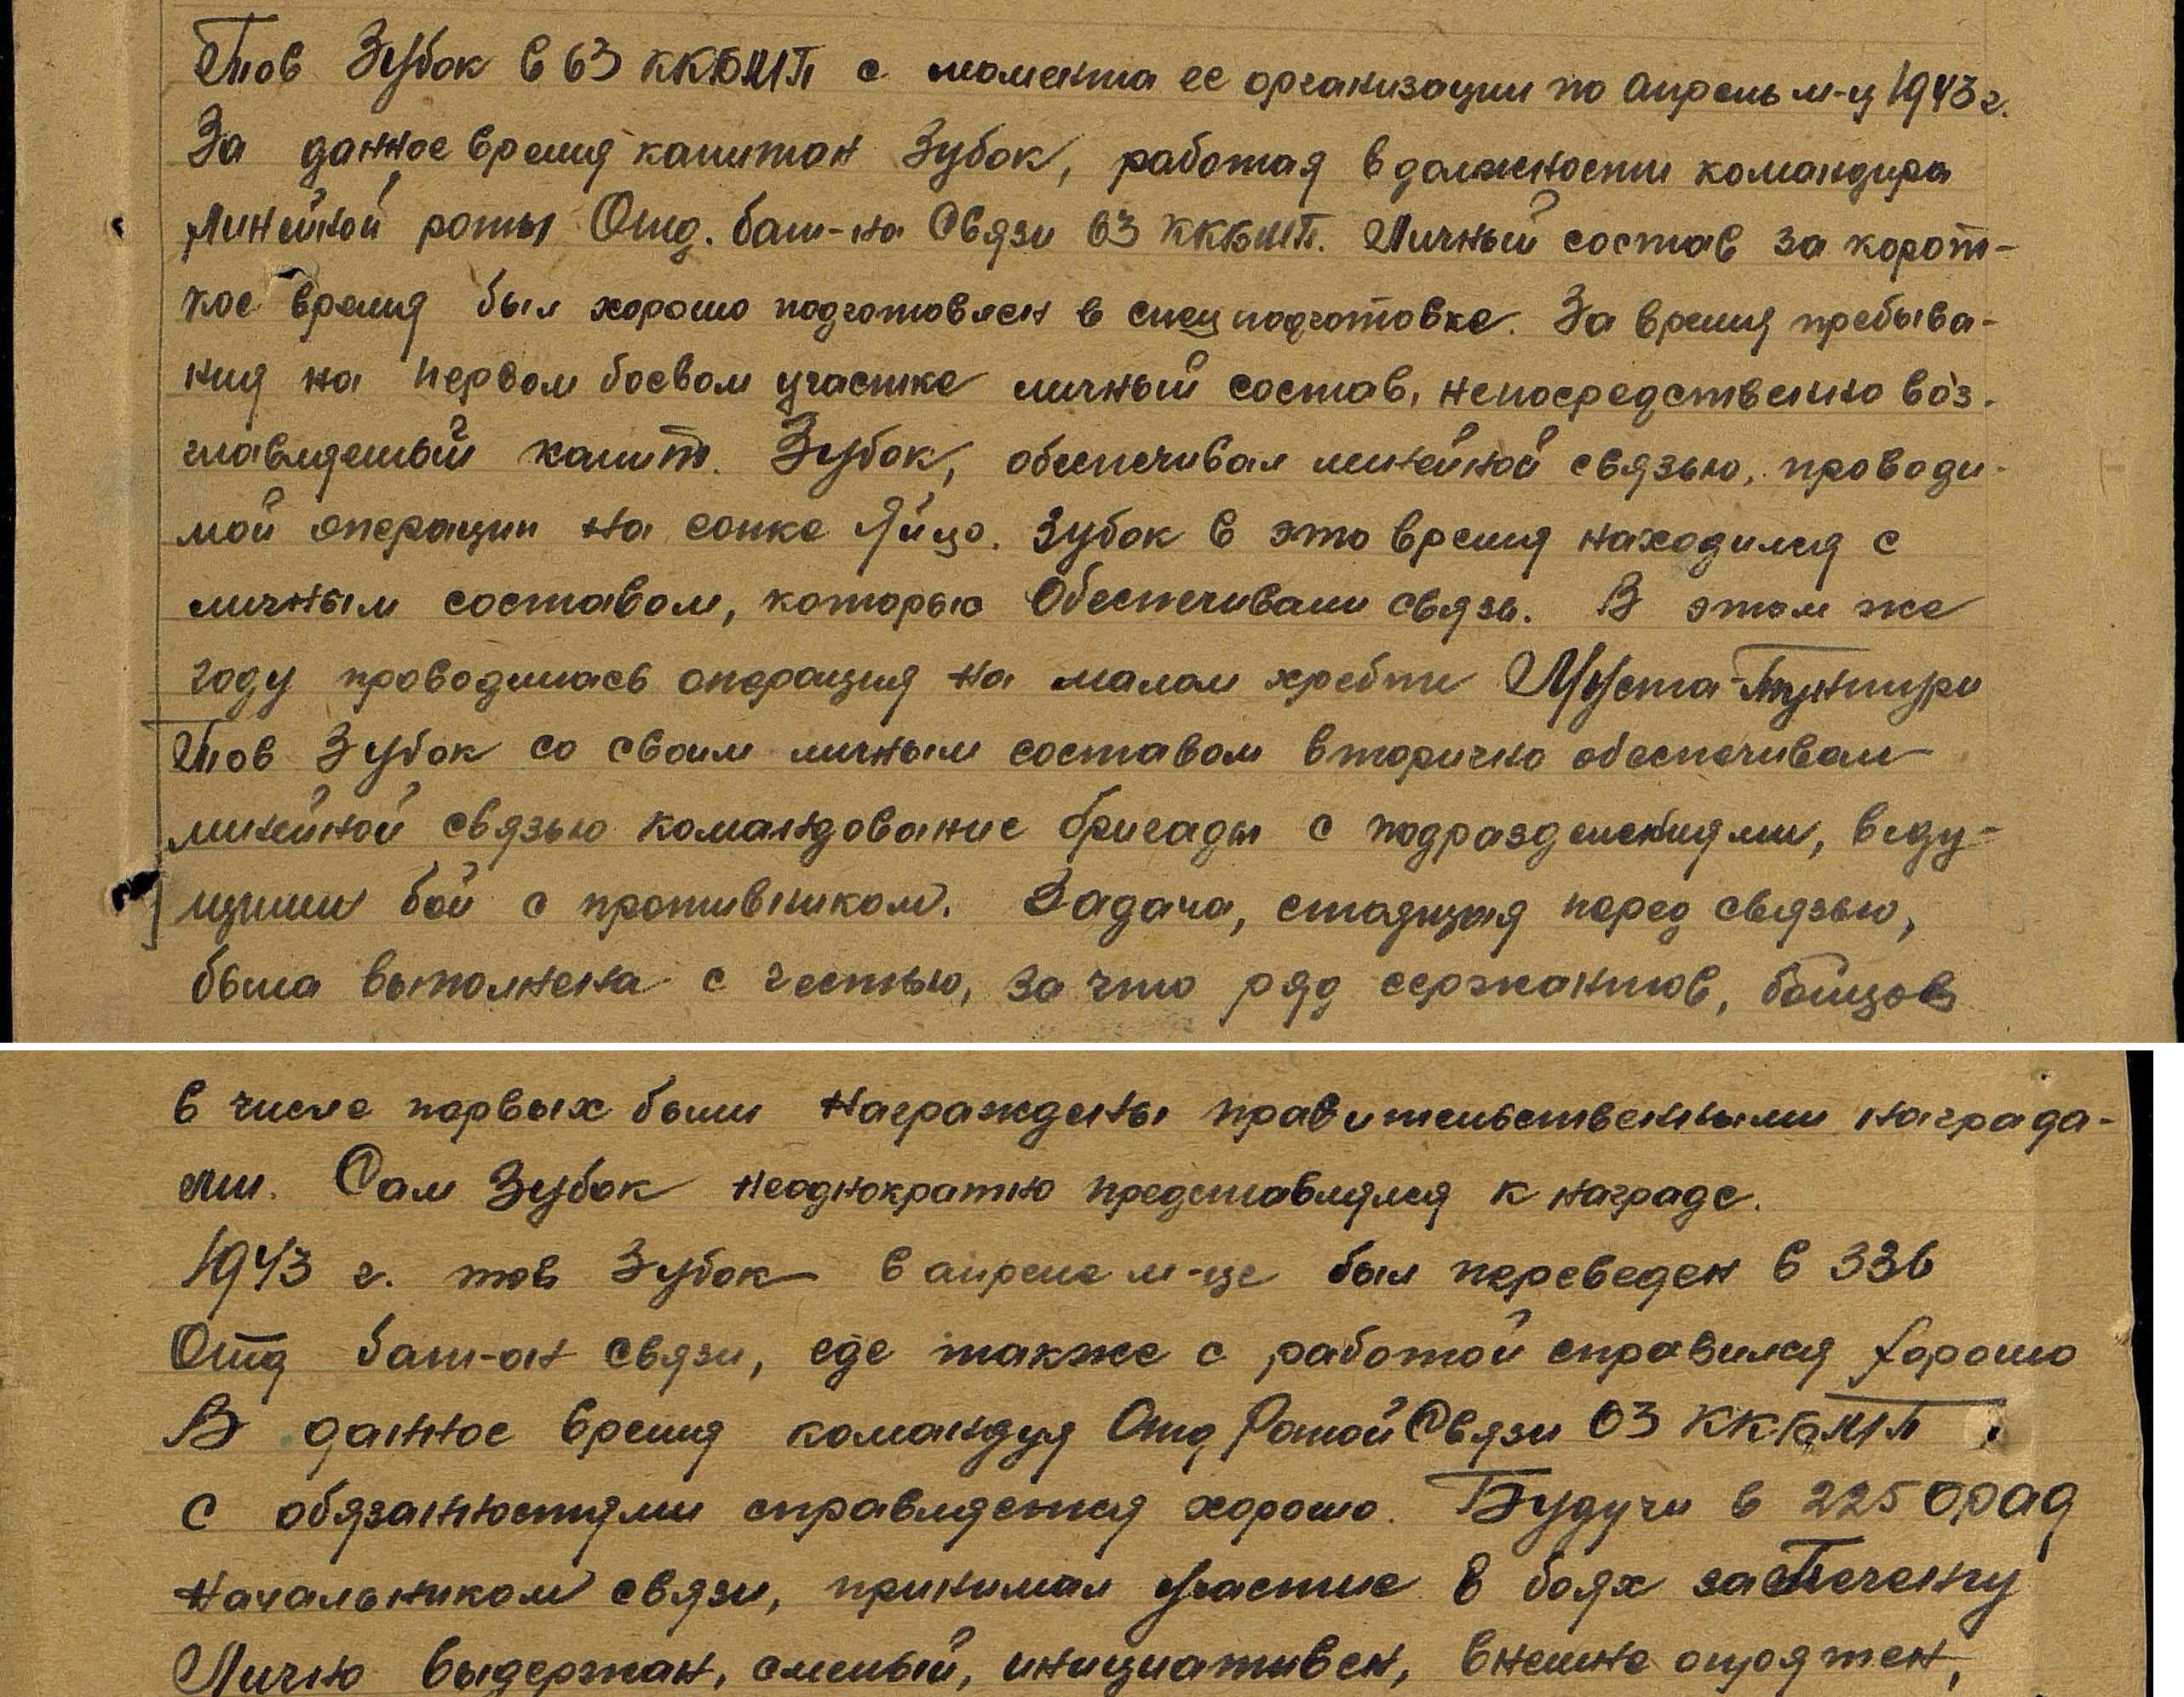 Тов Зубок в 63 ККБМП с момента ее организации по апрель м-ц 1943 г.
За данное время капитан Зубок, работая в должности командира
линейной роты Отд. бат-на Связи 63 ККБМП. Личный состав за корот-
кое время был хорошо подготовлен в спецподготовке. За время пребыва-
ния на первом боевом участке личный состав, непосредственно воз-
главляемый капит. Зубок, обеспечивал линейной связью, проводи-
мой операции на сопке Яйцо. Зубок в это время находился с
личным составом, которые обеспечивали связь. В этом же
году проводилась операция на малом хребте Муста-Тунтури
Тов Зубок со своим личным составом вторично обеспечивал
линейной связью командование бригады с подразделениями, веду-
щими бой с противником. Задача, стоящая перед связью,
была выполнена с честью, за что ряд сержантов, бойцов
в числе первых были награждены правительственными награда-
ми. Сам Зубок неоднократно представлялся к награде.
1943 г. тов Зубок в апреле м-це был переведен в 336
Отд бат-он связи, где также с работой справился хорошо
В данное время командуя Отд Ротой Связи 63 ККБМП
с обязанностями справляется хорошо. Будучи в 225 ОРАД
Начальником связи, принимал участие в боях за Печенгу
Лично выдержан, смелый, инициативен, внешне опрятен,